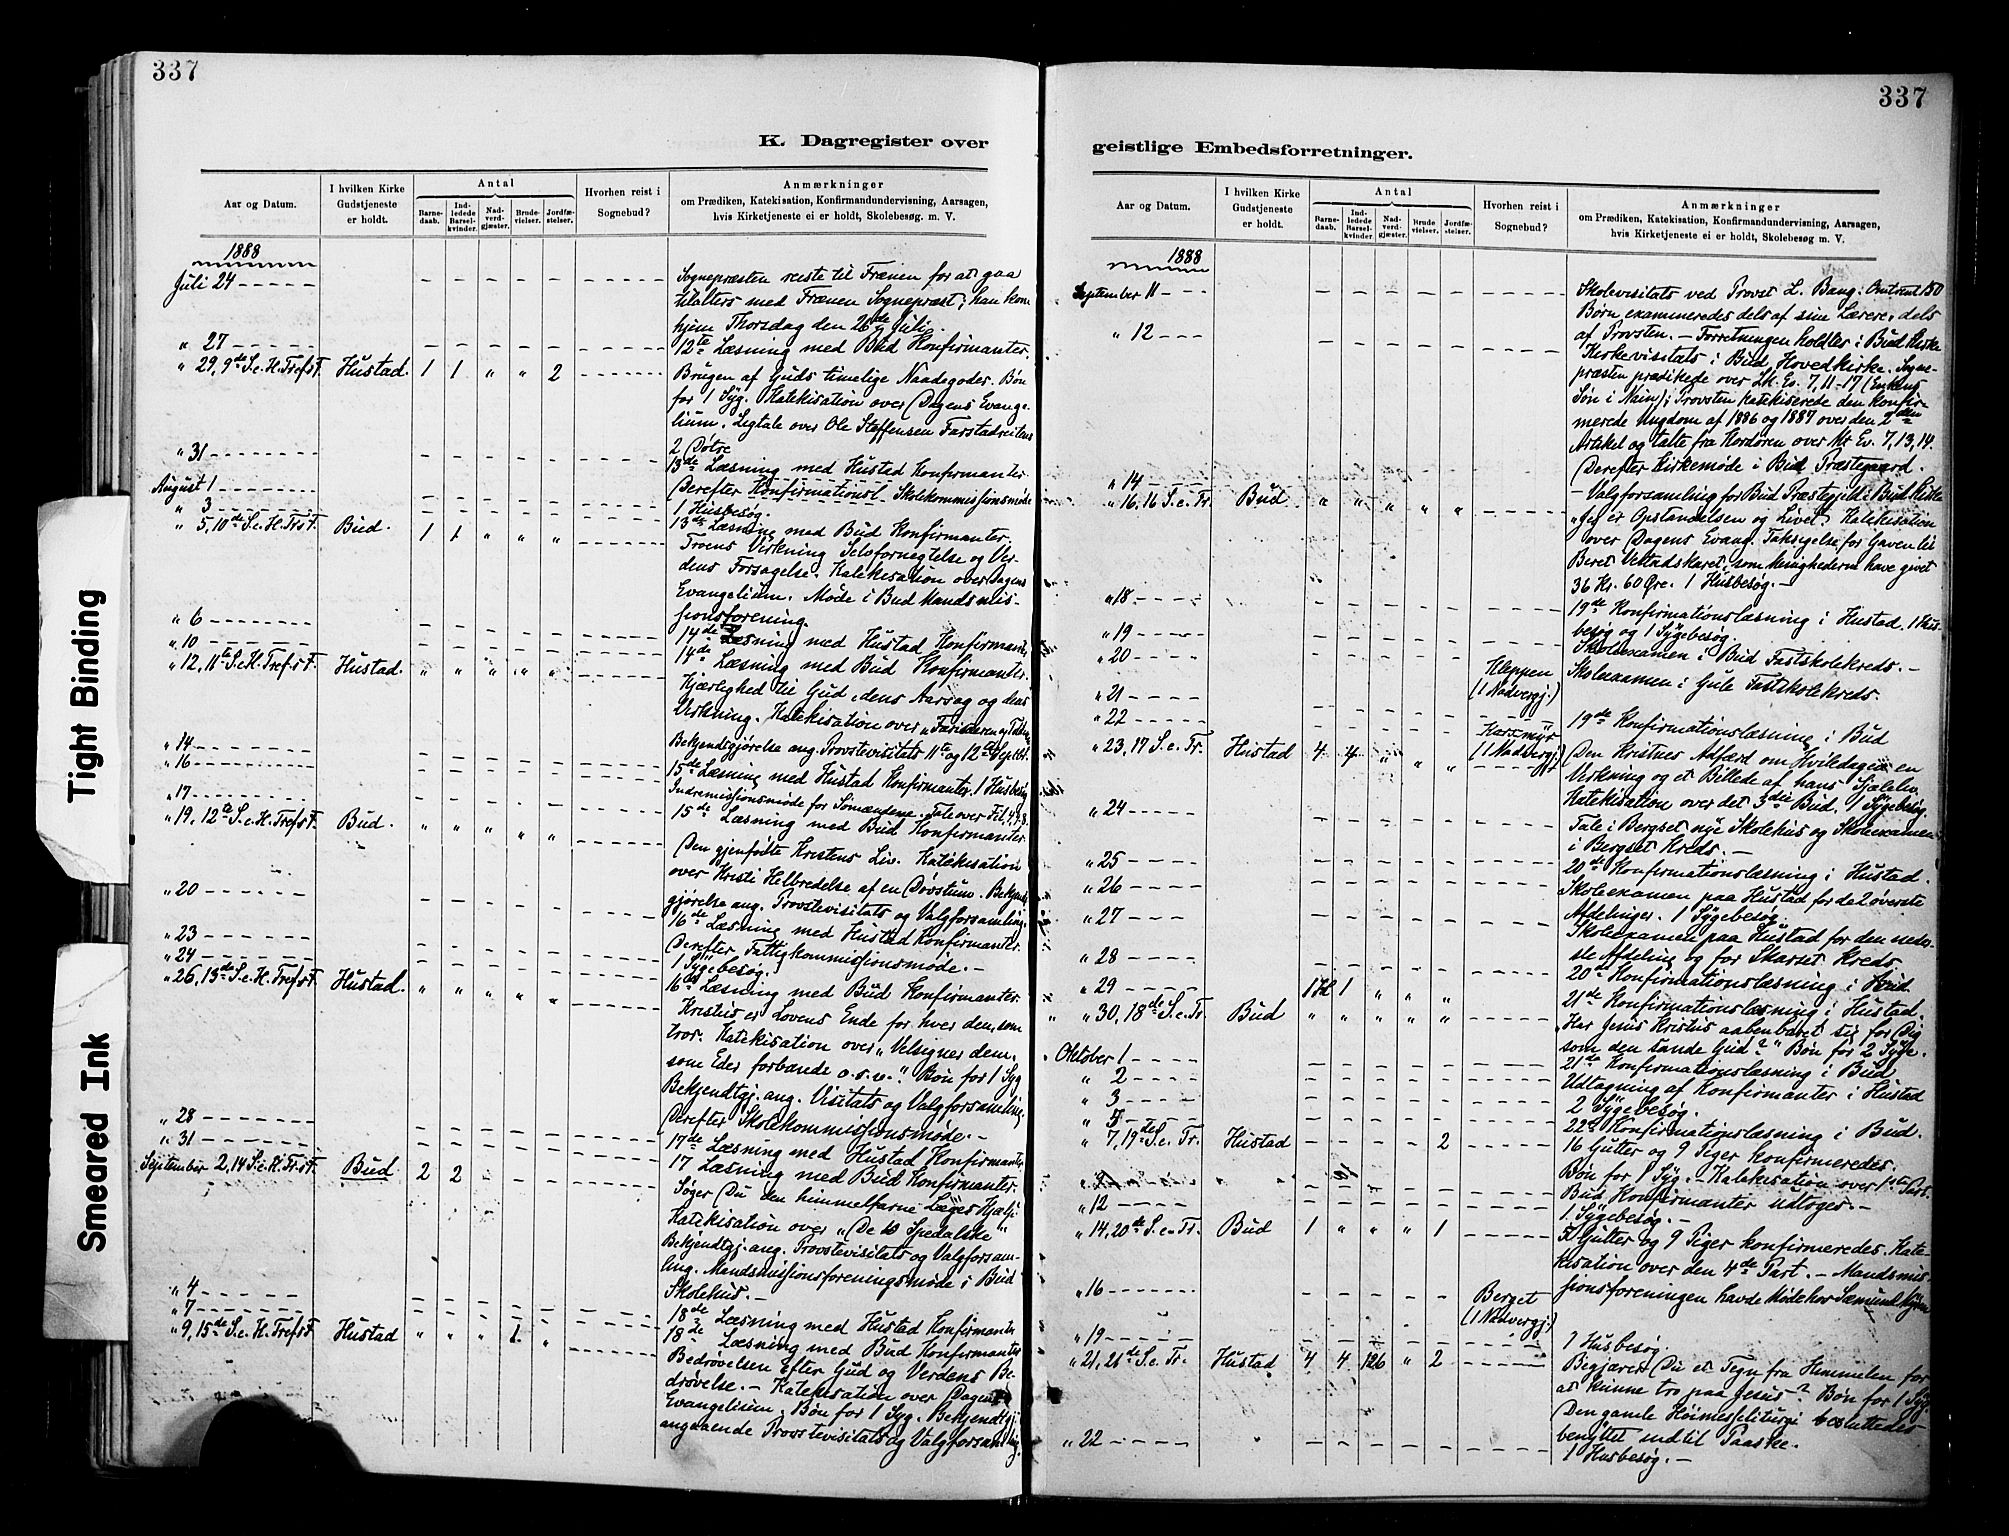 337
K. Dagregister over
Aar og Datum.
I hvilken Kirke
Gudstjeneste
er holdt.
Antal
Barne-
daab.
Ind-
ledede
Barsel-
kvinder.
Nad-
verd-
gjæster.
Brude-
vielser.
Jordfæ-
stelser.
Hvorhen reist i
Sognebud?
Anmærkninger
om Prædiken, Katekisation, Konfirmandundervisning, Aarsagen,
hvis Kirketjeneste ei er holdt, Skolebesøg. m. V.
1888
Juli 24 Sognepræsten reiste til Frænen for at gaa
tilalters med Frænen Sognepræst; han kom
hjem Thorsdag den 26de Juli.
" 27 12te Læsning med Bud Konfirmanter.
" 29, 9de S. e. H. Tref. F. Hustad. 1 1 " " 2 Brugen af Guds timelige Naadegoder. Bøn
for 1 Syg. Katekisation over Dagens Evange-
lium. Ligtale over Ole Steffensen Farstadreitens
2 Døtre
" 31 13de Læsning med Hustad Konfirmanter.
August 1 Derefter Skolekommissionsmøde
" 3 1 Husbesøg.
13de Læsning med Bud Konfirmanter.
" 5, 10de S. e. H. Tr. F. Bud. 1 1 " " " Troens Virkning Selvfornegtelse og Ver-
dens Forsagelse. Katekisation over Dagens
Evangelium. Møde i Bud Mandsmis-
sionsforening.
" 6 14de Læsning med Hustad Konfirmant.
" 10 14de Læsning med Bud Konfirmanter.
" 12, 11te S. e. H. Tref. F. Hustad. " " " " " Kjærlighed til Gud, dens Aarsag og dens
Virkning. Katekisation over "Farisæeren og
Bekjendtgjørelse ang. Provstevisitats 11te og 12te Septbr.
" 14 15de Læsning med Hustad Konfirmanter. 1 Husbesøg
" 16 Indremissionsmøde for Sømændene. Tale over Fil. 4,
" 17 15de Læsning med Bud Konfirmanter.
" 19, 12te S. e. H. Tref. F. Bud. " " " " " Den gjenfødte Kristens Liv. Katekisation
over Kristi Helbredelse af en Døvstum. Bekjendt-
gjørelse ang. Provstevisitats og Valgforsamling.
" 20 16de Læsning med Hustad Konfirmanter.
Derefter Fattigkommissionsmøde. -
" 23 1 Sygebesøg.
" 24 16de Læsning med Bud Konfirmanter.
" 26, 13de S. e. H. Tref. F. Hustad. " " " " " Kristus er Lovens Ende for hver den, som
tror. Katekisation over "Velsigner dem,
som Eder forbande o.s.v." Bøn for 1 Syg
Bekjendtgj. ang. Visitats og Valgforsamling.
Derefter Skolekommissionsmøde. -
" 28 17de Læsning med Hustad Konfirmanter
" 31 17 Læsning med Bud Konfirmanter.
September 2, 14 S. e. H. Tr. F. Bud. 2 2 Søger Du den himmelfarne Læges Hjælp
Katekisation over "De 10 Spedalske"
Bekjendtgj. ang. Provstevisitats og Valgforsam-
ling. Mandsmissionsforeningsmøde i Bud
Skolehus. -
" 4 18de Læsning med Hustad Konfirmanter
" 7 18de Læsning med Bud Konfirmanter
" 9, 15de S. e. H. Tref. F. Hustad " " " 1 " Bedrøvelsen efter Gud og Verdens Be-
drøvelse. - Katekisation over Dagens
Evangelium. Bøn for 1 Syg. Bekjendtgj.
angaaende Provstevisitats og Valgforsamling.
337
geistlige Embedsforretninger.
Aar og Datum.
I hvilken Kirke
Gudstjeneste
er holdt.
Antal
Barne-
daab.
Ind-
ledede
Barsel-
kvinder
Nad-
verd-
gjæster.
Brude
vielser.
Jordfæ-
stelser.
Hvorhen reist i
Sognebud?
Anmærkninger
om Prædiken, Katekisation, Konfirmandundervisning, Aarsagen,
hvis Kirketjeneste ei er holdt, Skolebesøg m. V.
1888
September 11 Skolevisitats ved Provst L. Bang. Omtrent 150
Børn examineredes dels af sine Lærere, dels
af Provsten. - Forretningen holdtes i Bud Kirke
" 12 Kirkevisitats i Bud Hovedkirke. Sogne-
præsten prædikede over Lk. Ev. 7, 11-17 (Enkens
Søn i Nain); Provsten katekiserede den konfir-
merede Ungdom af 1886 og 1887 over den 2den
Artikel og talte fra Kordøren over Mt Ev. 7, 13, 14.
Derefter Kirkemøde i Bud Præstegaard.
" 14 - Valgforsamling for Bud Præstegjeld i Bud Kirke
" 16, 16 S. e. Tr. Bud " " " " " "Jeg er Opstandelsen og Livet". Katekisation
over Dagens Evang. Taksigelse for Gaven til
som Menighederne have givet
36 Kr. 60 Øre. 1 Husbesøg. -
" 18 19de Konfirmationslæsning i Hustad. 1 Hus-
besøg og 1 Sygebesøg.
" 19 Skoleexamen i Bud Fastskolekreds. -
" 20 Kleppen
(1 Nadvergj.)
Skoleexamen i Gule Fastskolekreds.
" 21
" 22 Karsmyr
(1 Nadvergj.)
19de Konfirmationslæsning i Bud
" 23, 17 S. e. Tr. Hustad 4 4 " " " Den Kristnes Adfærd om Hviledagen en
Virkning og et Billede af hans Sjæleliv.
Katekisation over det 3die Bud. 1 Sygebesøg.
" 24 Tale i Bergset nye Skolehus og Skoleexamen
i Bergset Kreds. -
" 25 20de Konfirmationslæsning i Hustad.
" 26 Skoleexamen paa Hustad for de 2 øverste
Afdelinger. 1 Sygebesøg.
" 27 Skoleexamen paa Hustad for den neder-
ste Afdeling og for Skarset Kreds
" 28 20de Konfirmationslæsning i Bud.
" 29 1 1 " " " 21de Konfirmationslæsning i Hustad.
" 30, 18de S. e. Tr. Bud " " " " " "Har Jesus Kristus aabenbaret sig for Dig
som den sande Gud?" Bøn for 2 Syge.
Oktober 1 21de Konfirmationslæsning i Bud
" 2 Udtagning af Konfirmanter i Hustad
" 3 2 Sygebesøg.
" 5 22de Konfirmationslæsning i Bud.
" 7, 19de S. e. Tr. Hustad 2 16 Gutter og 9 Piger konfirmeredes.
Bøn for 1 Syg. - Katekisation over 1ste Part.
Bud Konfirmanter udtoges. -
" 12 1 Sygebesøg. -
" 14, 20de S. e. Tr. Bud 1 " " " 1 7 Gutter og 9 Piger konfirmeredes. Kate-
kisation over den 4de Part. - Mandsmis-
sionsforeningen havde Møde hos
" 16 Berget
(1 Nadvergj.)
" 19 1 Husbesøg.
" 21, 21de S. e. Tr. Hustad 4 4 126 " 2 Begjærer Du et Tegn fra Himmelen for
at kunne tro paa Jesus? Bøn for 1 Syg
Den gamle Høimesseliturgi besluttedes
benyttet indtil Paaske.
" 22 1 Husbesøg. -
Tight Binding
Smeared Ink